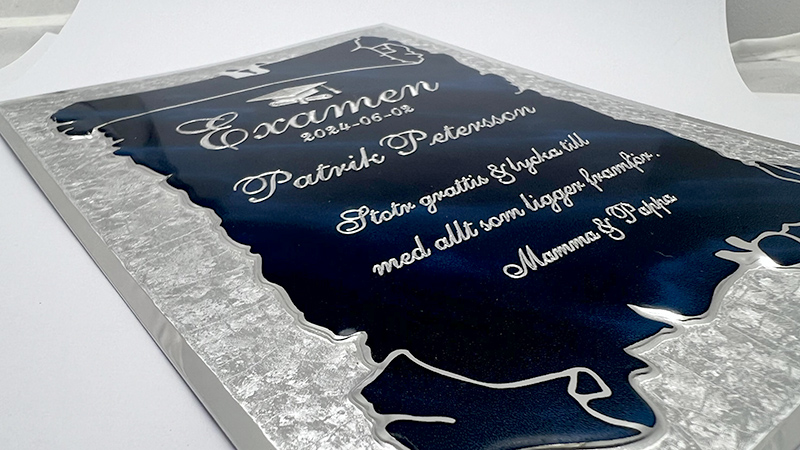 Examen
2024-06-02
Patrik Petersson
Stotr grattis & lycka till
med allt som ligger framför.
Mamma & Pappa